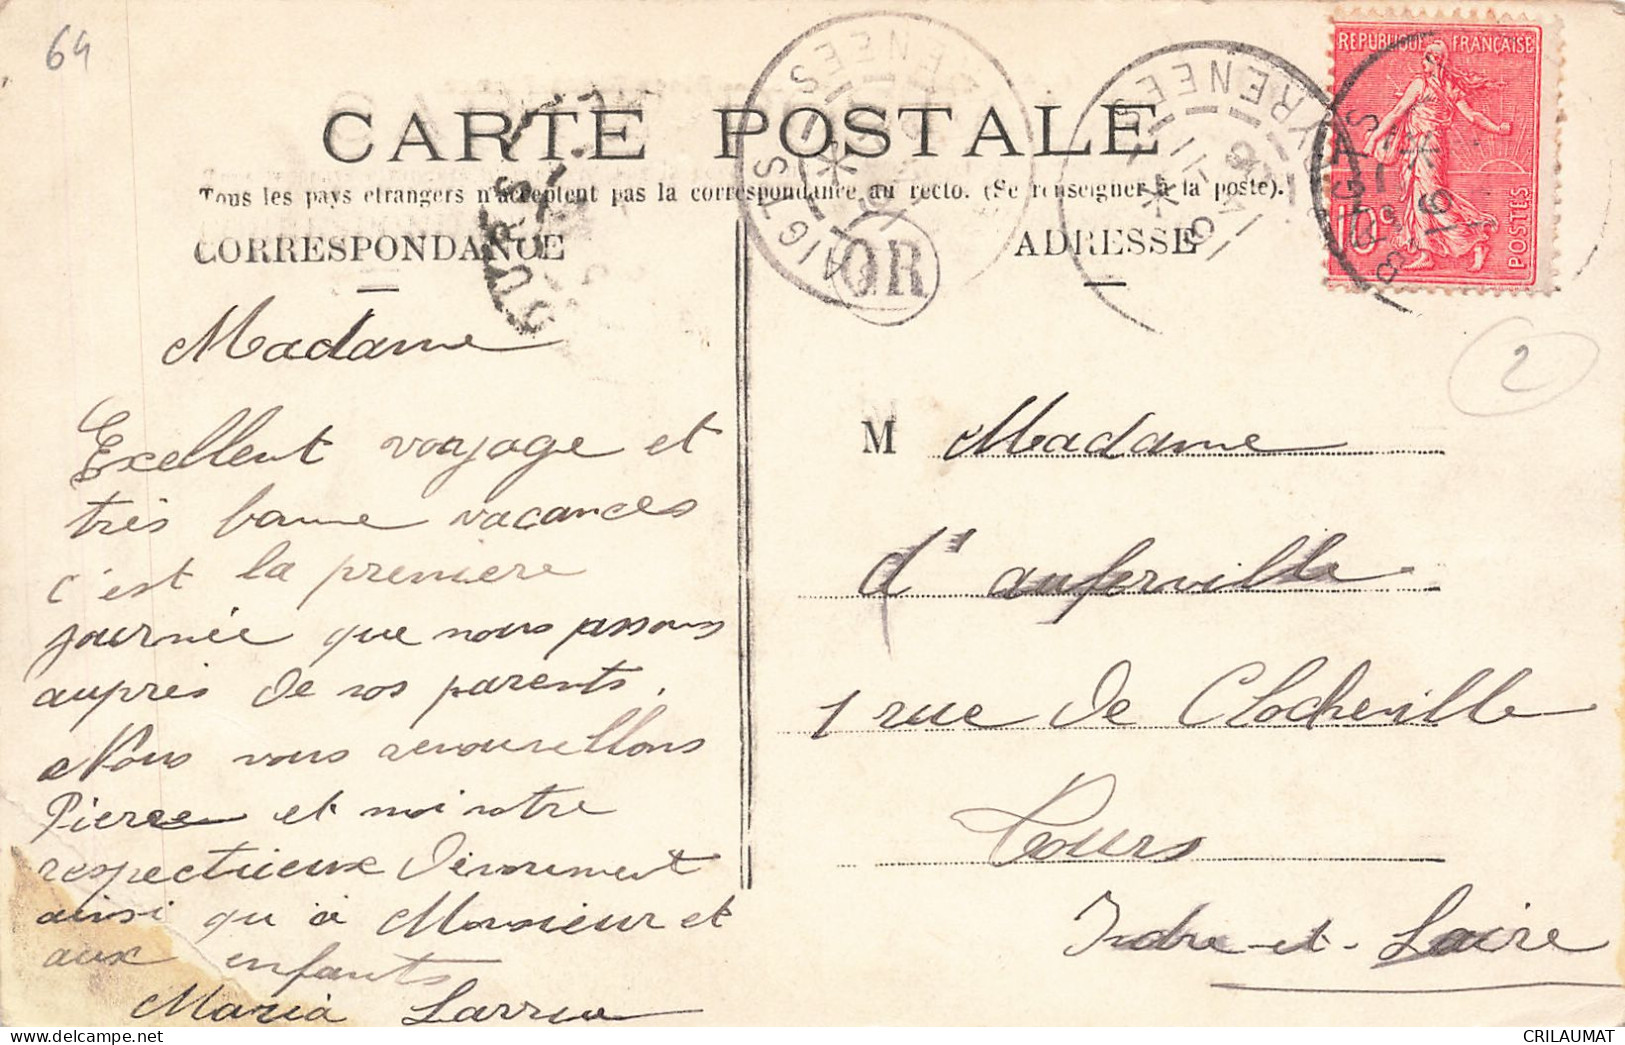 64
REPUBLIQUE FRANÇAISE
10c
POSTES
CARTE POSTALE
Tous les pays etrangers n'acceptent pas la correspondance au recto. (Se renseigner à la poste).
CORRESPONDANCE
ADRESSE
OR
2
Madame
Excellent voyage et
très bonne vacances
c'est la premiere
journée que nous passons
auprès de nos parents.
Nous vous renouvellons
Pierre et moi notre
respectueux dévouement
ainsi qu'à Monsieur et
aux enfants
Maria
M Madame
d'
1 rue de Clocheville
Tours
Indre-et-Loire
CRILAUMAT